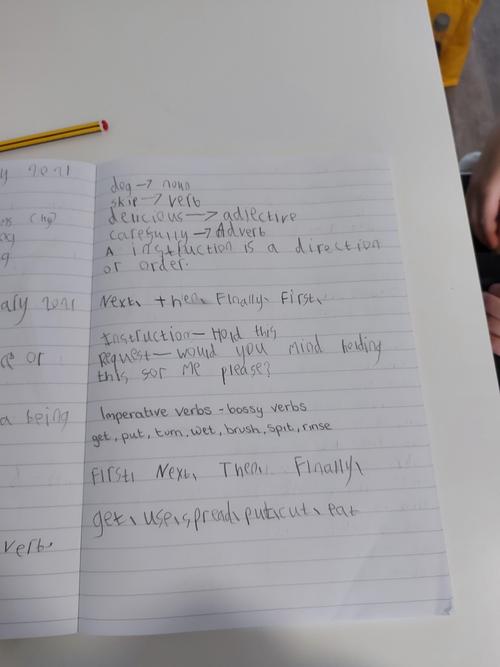 y 2021
(hg)
ag
g
ary 2021
ce or
a being
verb.
dog → noun
skip → verb
delicious → adjective
carefully → Adverb
A instruction is a direction
or order.
Next, then, Finally, First,
Instruction - Hold this
Request - would you mind holding
this for me please?
Imperative verbs - bossy verbs
get, put, turn, wet, brush, spit, rinse
First, Next, Then, Finally,
get, use, spread, put, cut, eat